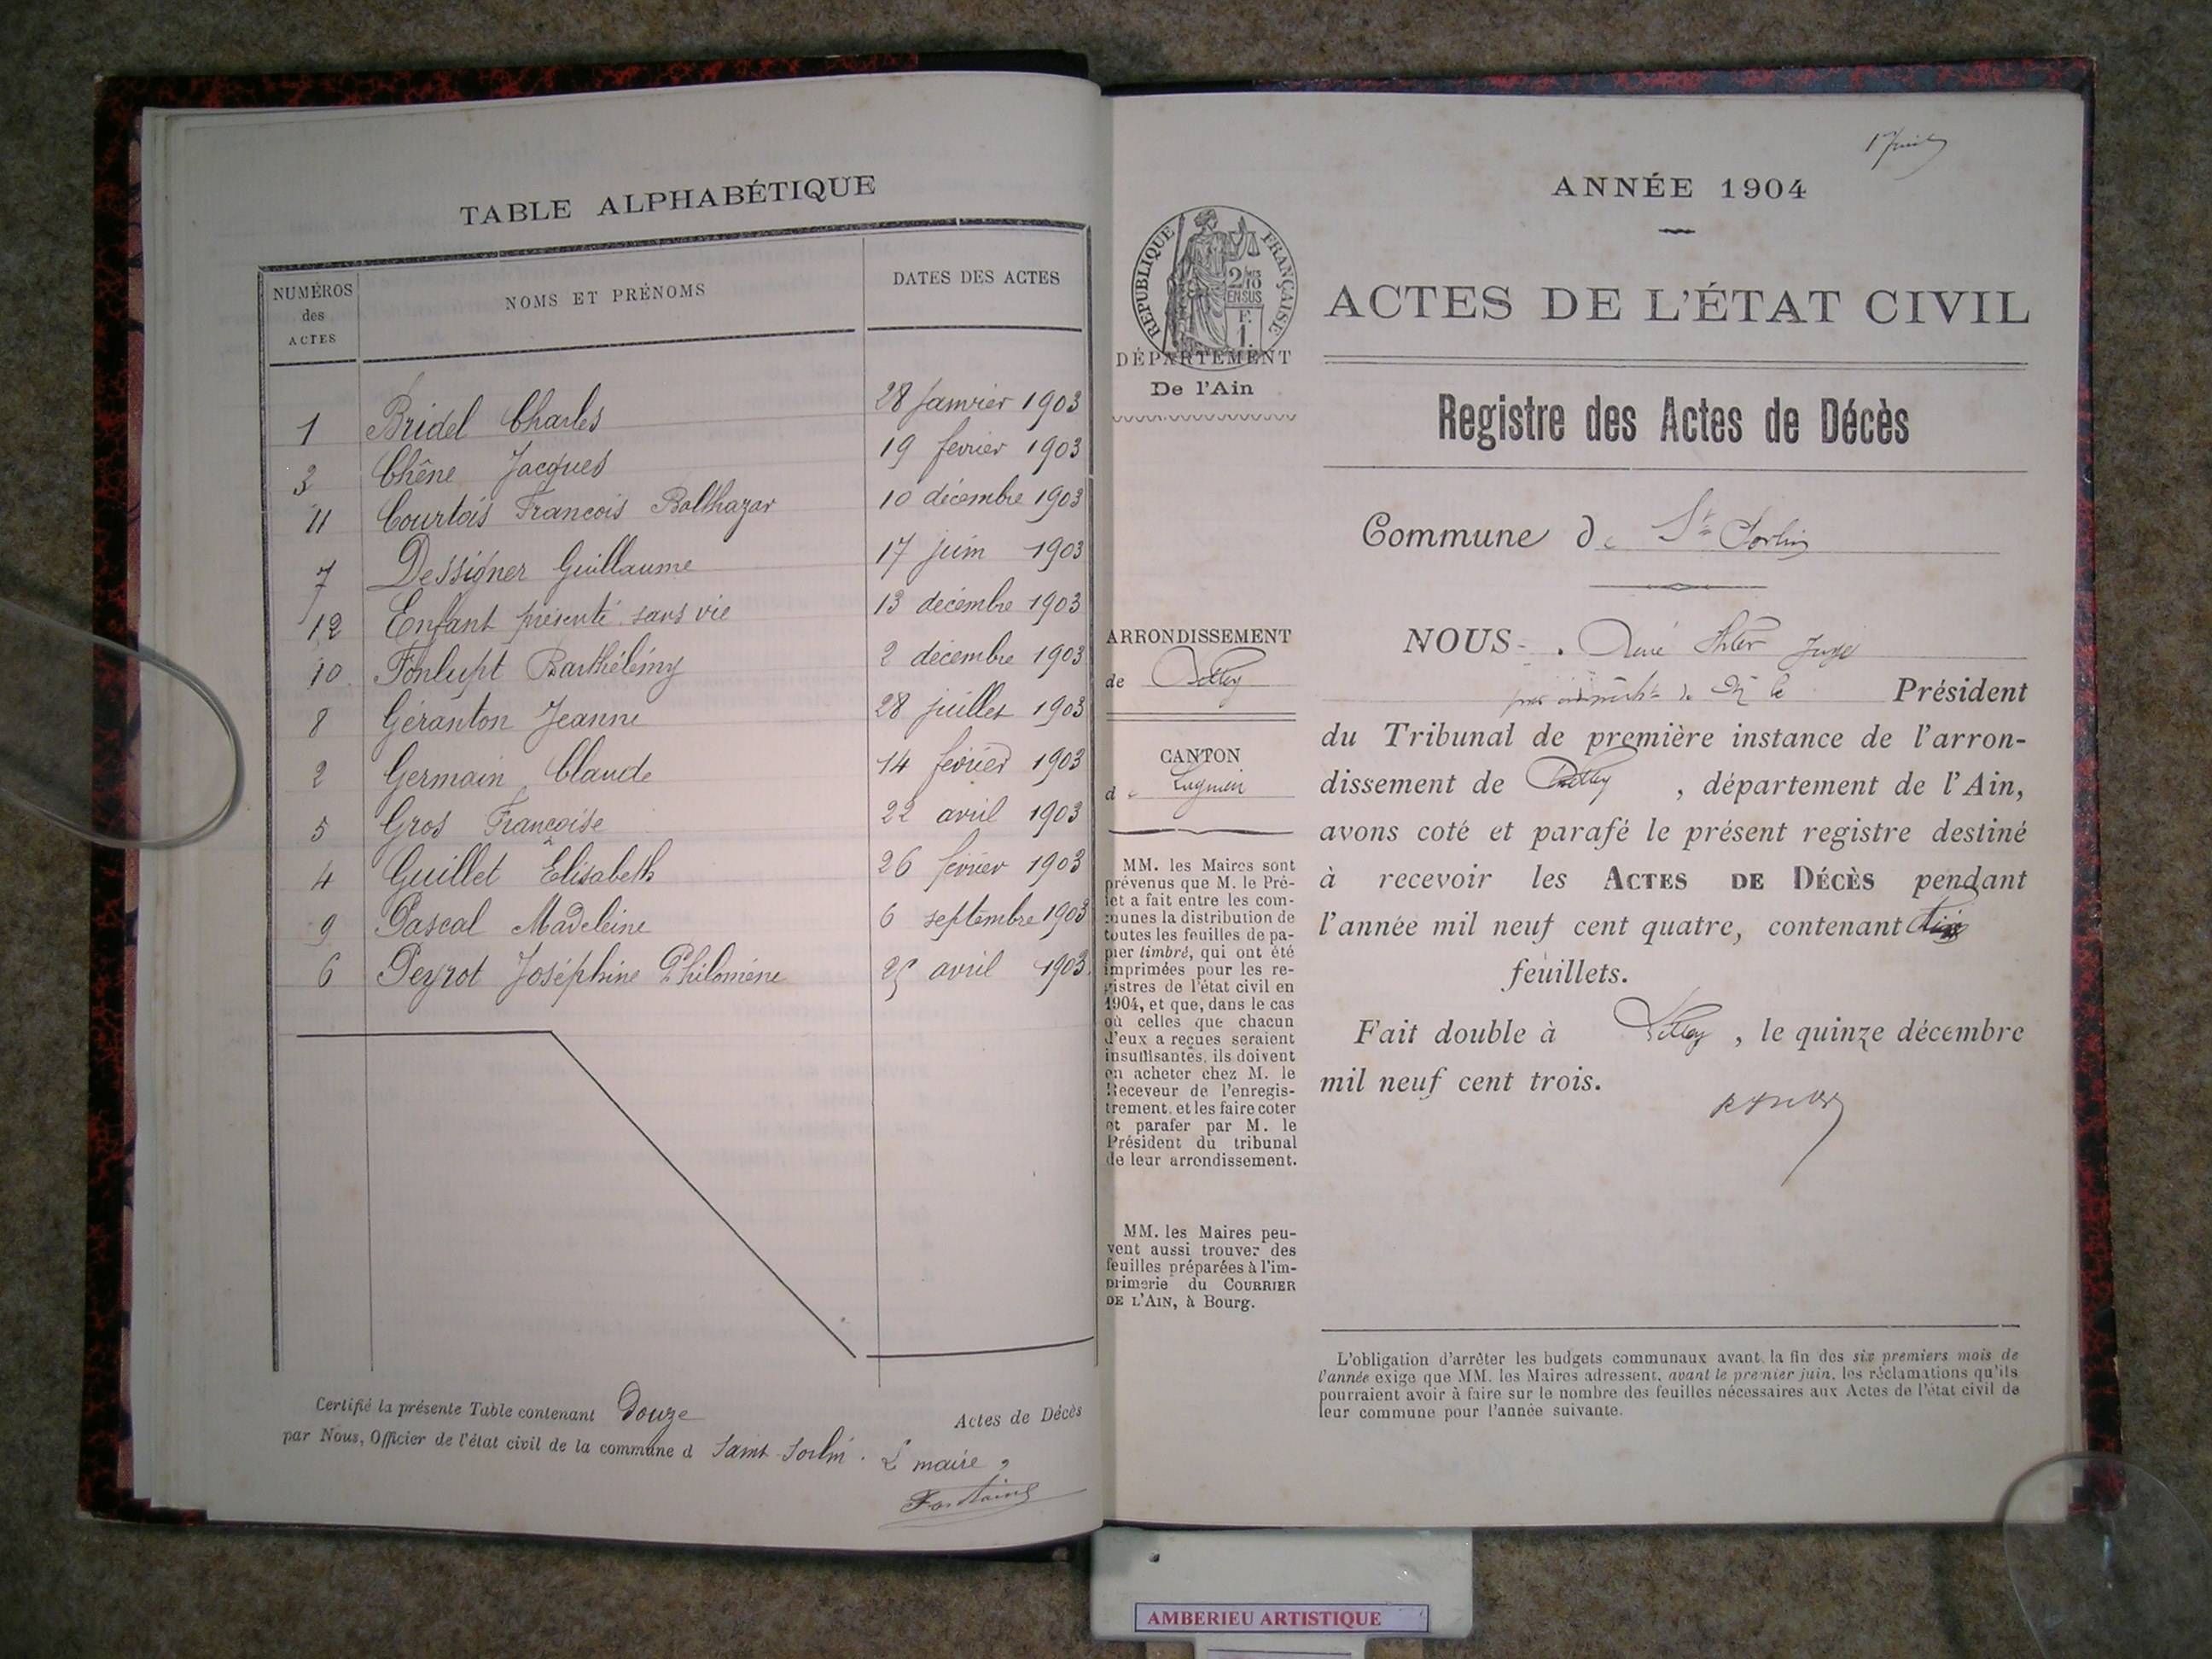 TABLE ALPHABÉTIQUE
NUMÉROS des ACTES
NOMS ET PRÉNOMS
DATES DES ACTES
1 Bridel Charles 28 Janvier 1903
3 Chêne Jacques 19 fevrier 1903
11 Courtois Francois Balthazar 10 décembre 1903
7 Dessigner Guillaume 17 juin 1903
12 Enfant présenté sans vie 13 décembre 1903
10 Fonlupt Barthélémy 2 décembre 1903
8 Géranton Jeanne 28 juillet 1903
2 Germain Claude 14 février 1903
5 Gros Françoise 22 avril 1903
4 Guillet Elisabeth 26 février 1903
9 Pascal Madeleine 6 septembre 1903
6 Peyrot Joséphine Philomène 25 avril 1903
Certifié la présente Table contenant Douze Actes de Décès
par Nous, Officier de l'état civil de la commune d Saint-Sorlin.
L maire,
Fontaine
RÉPUBLIQUE FRANÇAISE
2/10
EN SUS
F.
1.
DÉPARTEMENT
De l'Ain
ARRONDISSEMENT
de Belley
CANTON
de Lagnieu
MM. les Maires sont
prévenus que M. le Pré-
fet a fait entre les com-
munes la distribution de
toutes les feuilles de pa-
pier timbré, qui ont été
imprimées pour les re-
gistres de l'état civil en
1904, et que, dans le cas
où celles que chacun
d'eux a reçues seraient
insuffisantes, ils doivent
en acheter chez M. le
Receveur de l'enregis-
trement, et les faire coter
et parafer par M. le
Président du tribunal
de leur arrondissement.
MM. les Maires peu-
vent aussi trouver des
feuilles préparées à l'im-
primerie du COURRIER
DE L'AIN, à Bourg.
ANNÉE 1904
ACTES DE L'ÉTAT CIVIL
Registre des Actes de Décès
Commune de St Sorlin
NOUS René Juge
Président
du Tribunal de première instance de l'arron-
dissement de Belley, département de l'Ain,
avons coté et parafé le présent registre destiné
à recevoir les ACTES DE DÉCÈS pendant
l'année mil neuf cent quatre, contenant
feuillets.
Fait double à Belley, le quinze décembre
mil neuf cent trois.
L'obligation d'arrêter les budgets communaux avant la fin des six premiers mois de
l'année exige que MM. les Maires adressent, avant le premier juin, les réclamations qu'ils
pourraient avoir à faire sur le nombre des feuilles nécessaires aux Actes de l'état civil de
leur commune pour l'année suivante.
AMBERIEU ARTISTIQUE